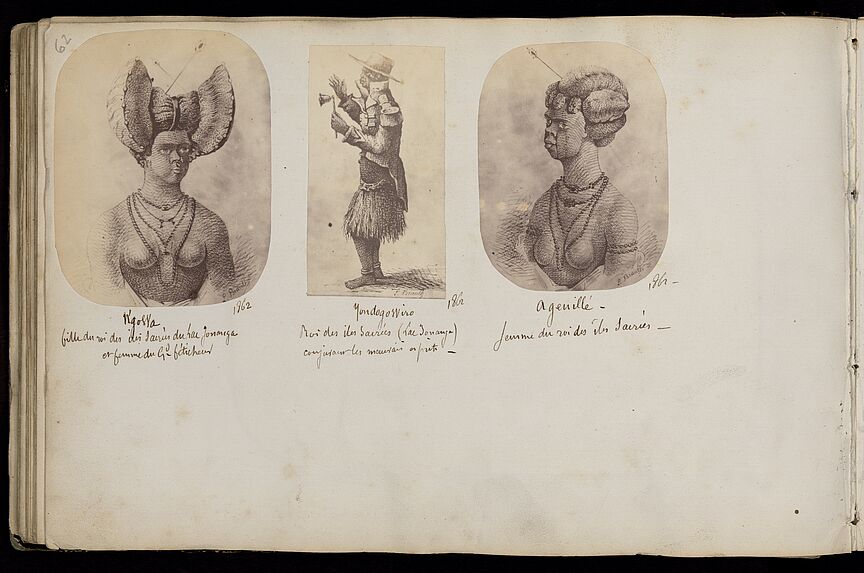 62
NgoWa 1862
fille du roi des îles Sacrées du lac Jonanga
et femme du Gd féticheur
YondogoWiro 1862
Roi des îles Sacrées (lac Jonanga)
conjurant les mauvais esprits —
Agenillé — 1862 —
femme du roi des îles Sacrées —